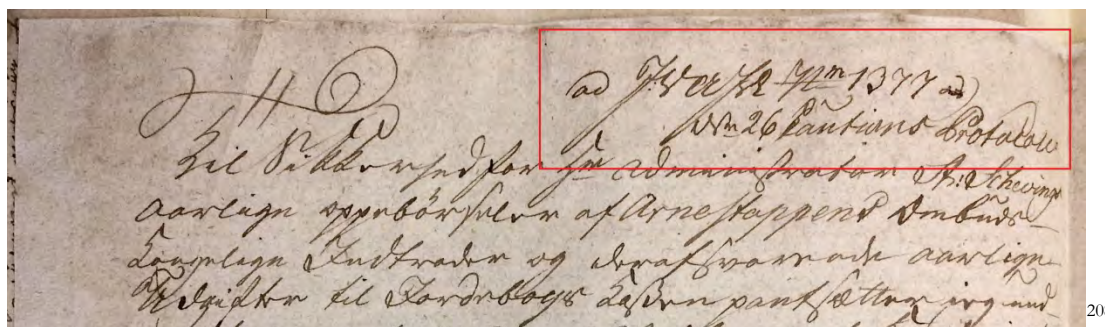 ad J: 1377
26 Cautions Protocoll
Til Sikkerhed for Hr Administrator St: Schevings
aarlige oppebörseler af Arnestappens Ombuds-
Kongelige Indtræder og deraf svarende aarlige
Udgifter til Jordebogs Cassen pantsætter jeg und-
20